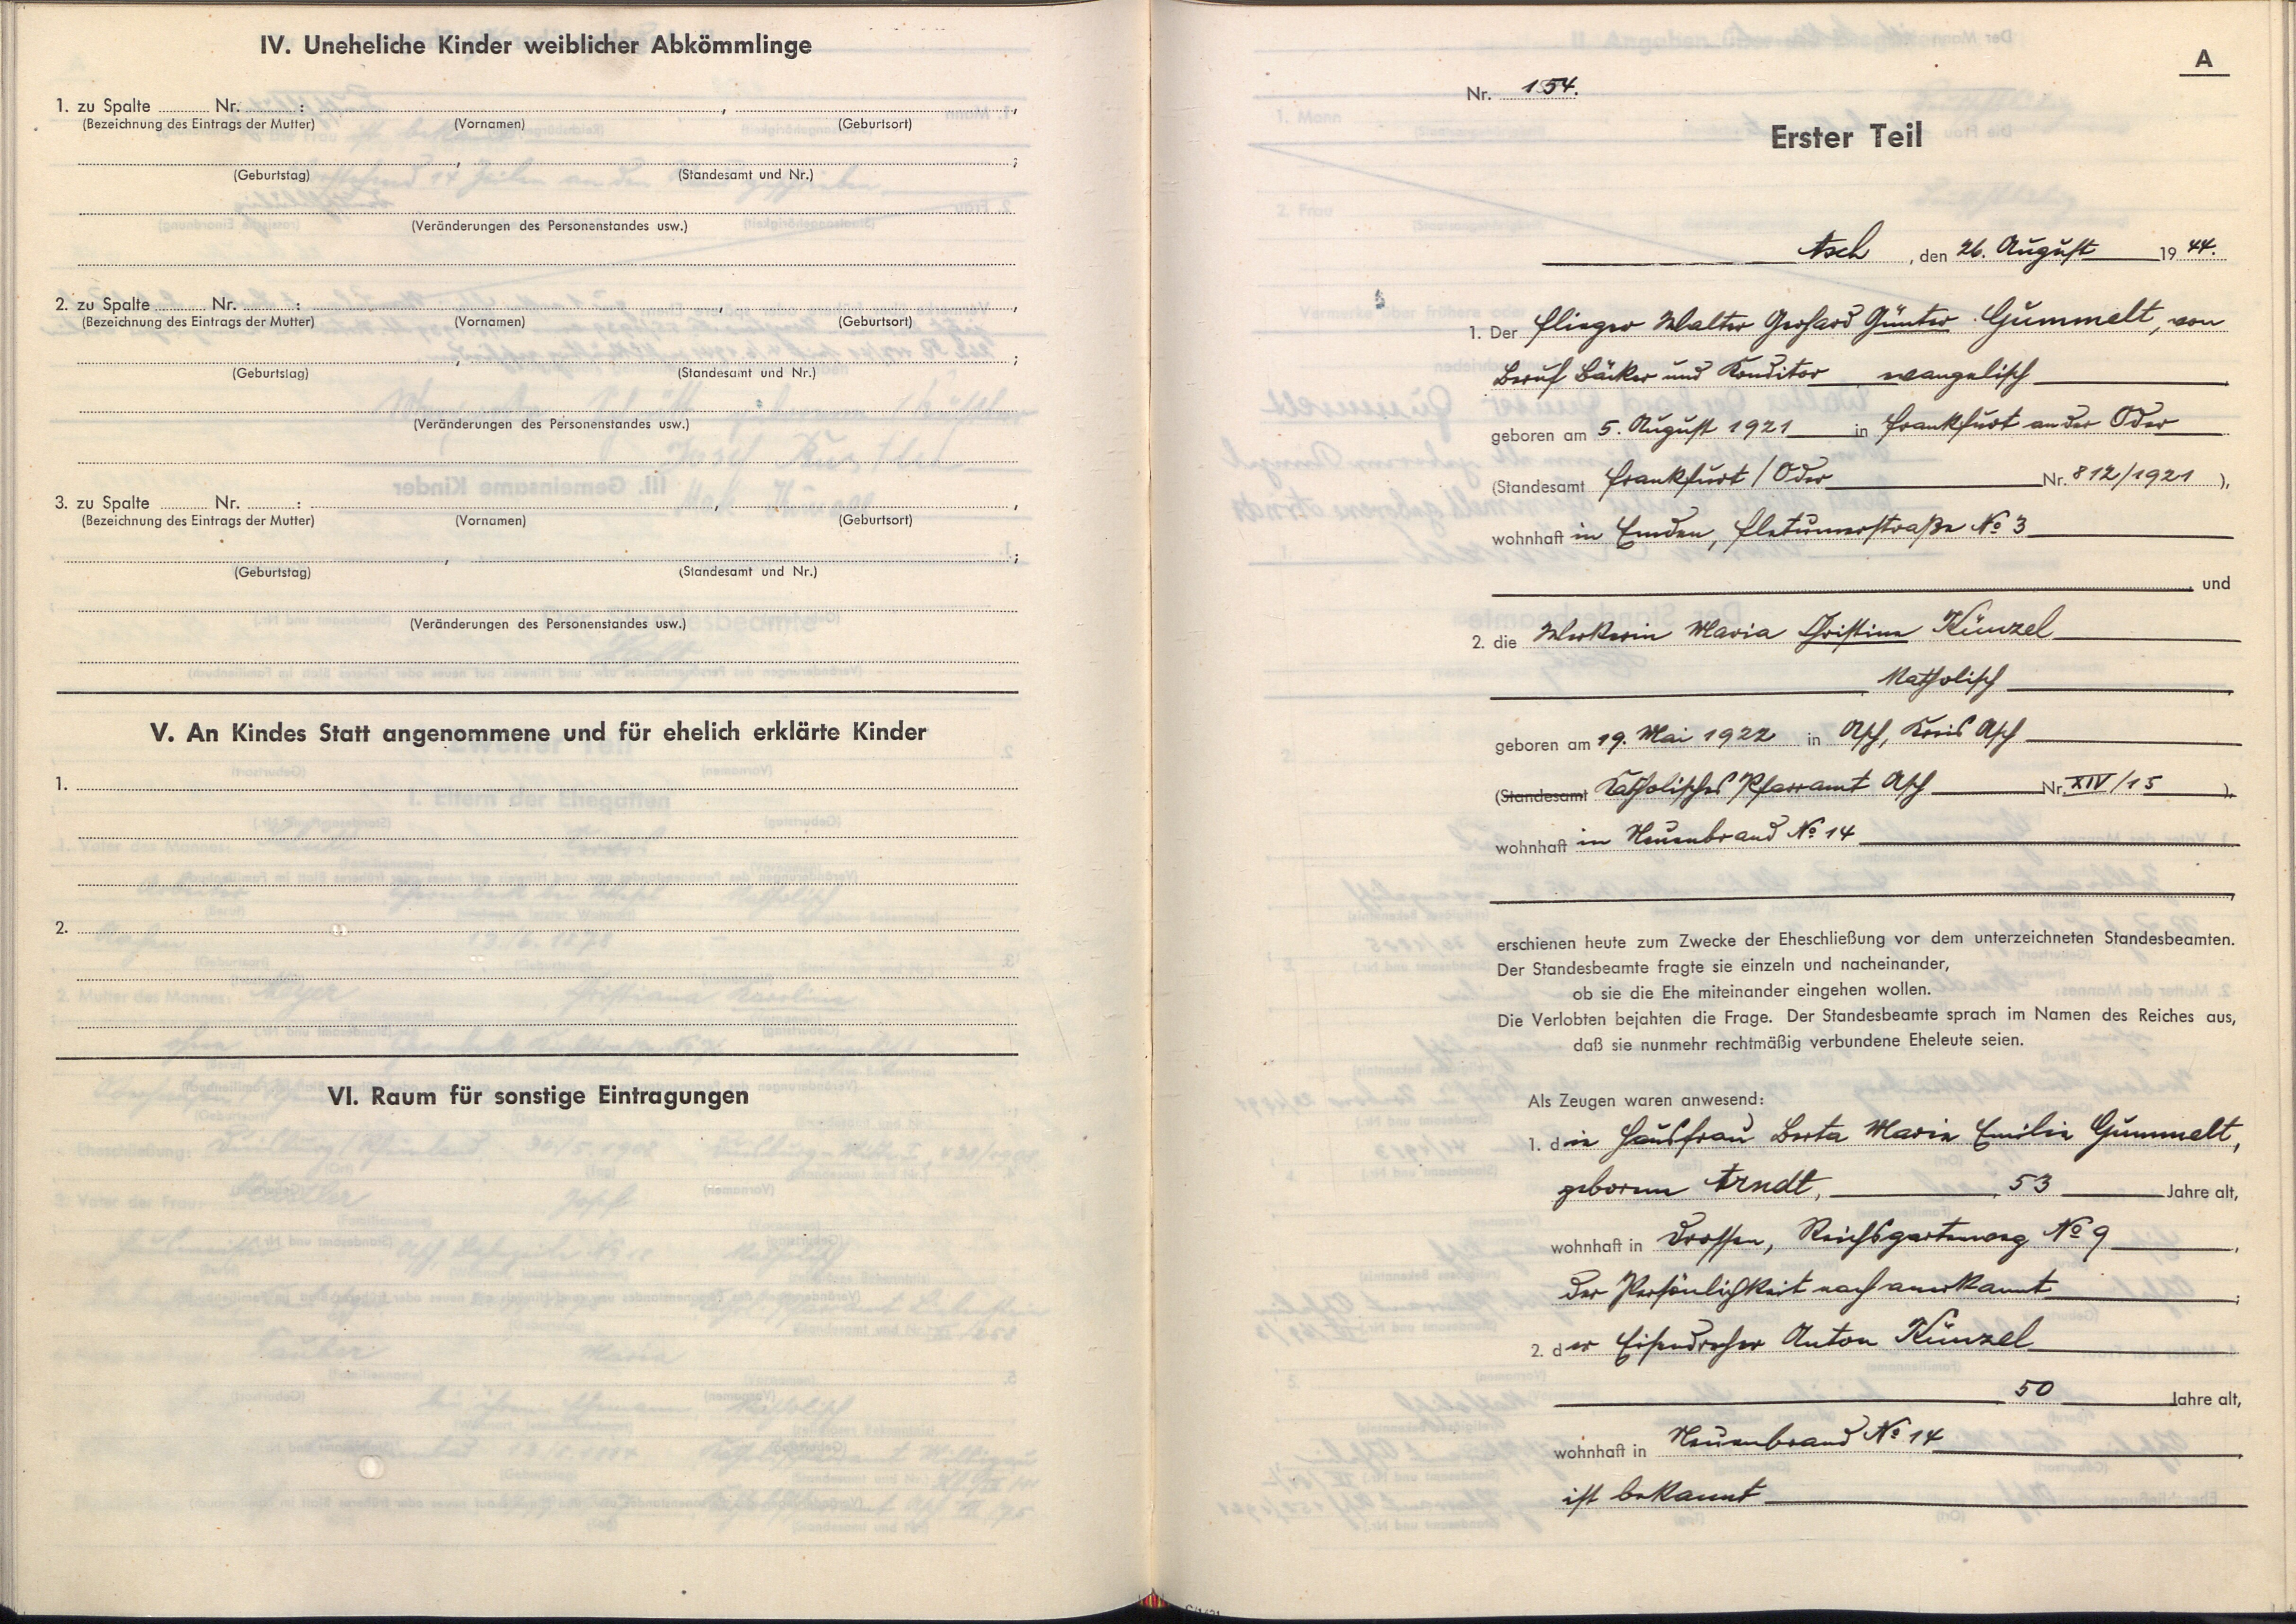 IV. Uneheliche Kinder weiblicher Abkömmlinge
1. zu Spalte Nr. : , ,
(Bezeichnung des Eintrags der Mutter) (Vornamen) (Geburtsort)
, ;
(Geburtstag) (Standesamt und Nr.)
(Veränderungen des Personenstandes usw.)
2. zu Spalte Nr. : , ,
(Bezeichnung des Eintrags der Mutter) (Vornamen) (Geburtsort)
, ;
(Geburtstag) (Standesamt und Nr.)
(Veränderungen des Personenstandes usw.)
3. zu Spalte Nr. : , ,
(Bezeichnung des Eintrags der Mutter) (Vornamen) (Geburtsort)
, ;
(Geburtstag) (Standesamt und Nr.)
(Veränderungen des Personenstandes usw.)
V. An Kindes Statt angenommene und für ehelich erklärte Kinder
1.
2.
VI. Raum für sonstige Eintragungen
A
Nr. 154.
Erster Teil
Asch, den 26. August 1944.
1. Der Flieger Walter Gerhard Günter Gummelt, von
Beruf Bäcker und Konditor evangelisch
geboren am 5. August 1921 in Frankfurt an der Oder
(Standesamt Frankfurt / Oder Nr. 812/1921),
wohnhaft in Emden, No 3
und
2. die Maria Christine Künzel
Katholisch
geboren am 19. Mai 1922 in Asch, Kreis Asch
(Standesamt Katholisches Pfarramt Asch Nr. XIV/15),
wohnhaft in Neuenbrand No 14
erschienen heute zum Zwecke der Eheschließung vor dem unterzeichneten Standesbeamten.
Der Standesbeamte fragte sie einzeln und nacheinander,
ob sie die Ehe miteinander eingehen wollen.
Die Verlobten bejahten die Frage. Der Standesbeamte sprach im Namen des Reiches aus,
daß sie nunmehr rechtmäßig verbundene Eheleute seien.
Als Zeugen waren anwesend:
1. die Hausfrau Berta Marie Emilie Gummelt,
geborene Arndt, 53 Jahre alt,
wohnhaft in Drossen, Reichsgartenweg No 9,
der Persönlichkeit nach anerkannt;
2. der Eisendreher Anton Künzel
50 Jahre alt,
wohnhaft in Neuenbrand No 14
ist bekannt